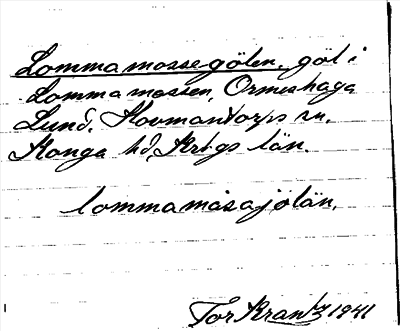 Lommamossegölen, göl i
Lommamossen, Ormeshaga
Lund, Kovmantorps sn.
Konga hd, Krbgs län.
lommamåsajölän.
Tor Krantz 1941